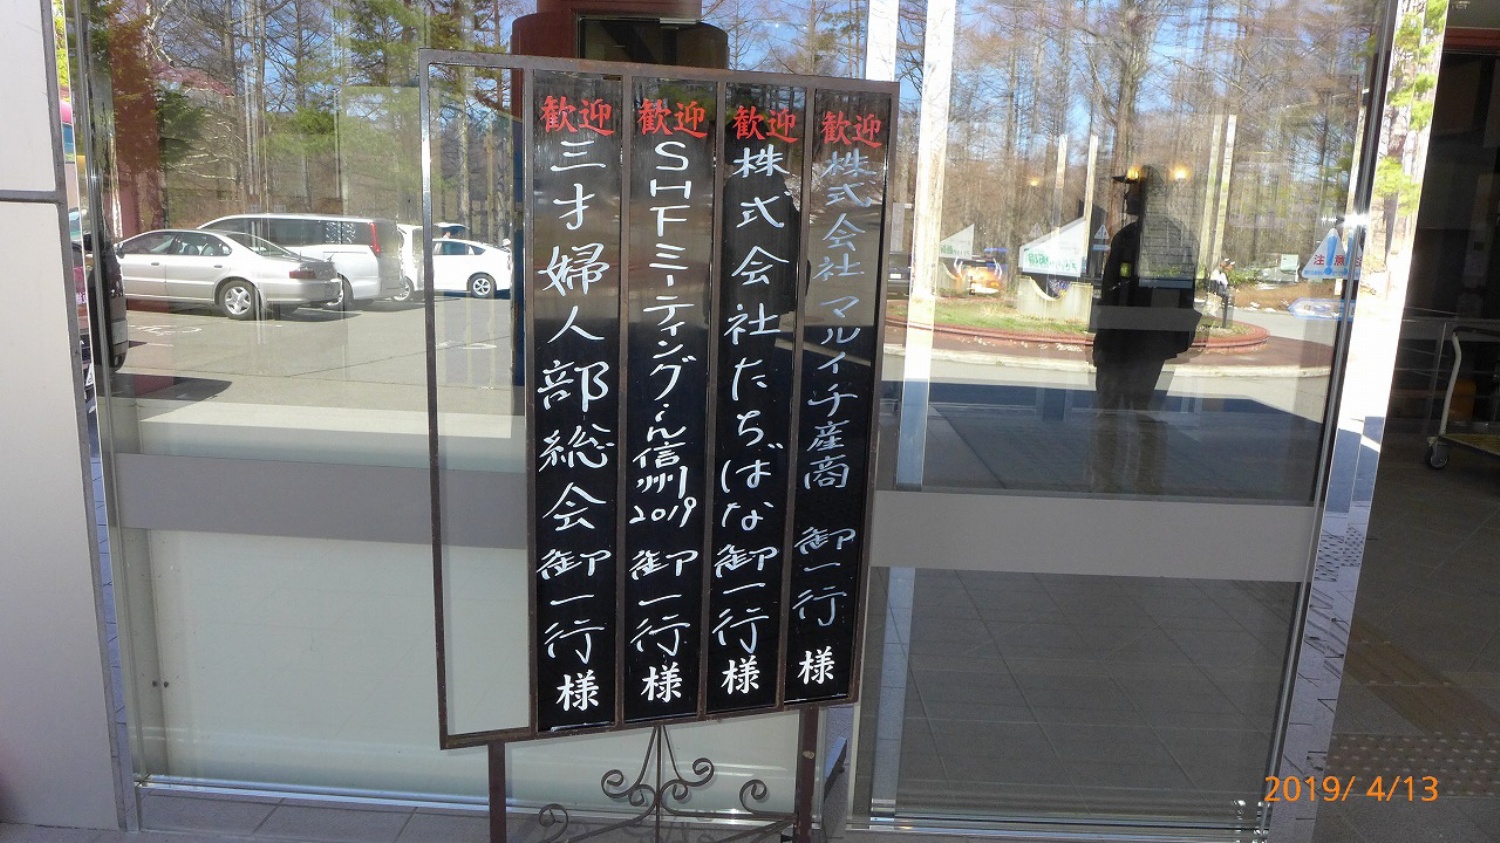 歓迎 株式会社 マルイチ産商 御一行 様
歓迎 株式会社たちばな御一行様
歓迎 SHFミーティング・in信州2019 御一行様
歓迎 三才婦人部総会御一行様
注意
2019/ 4/13